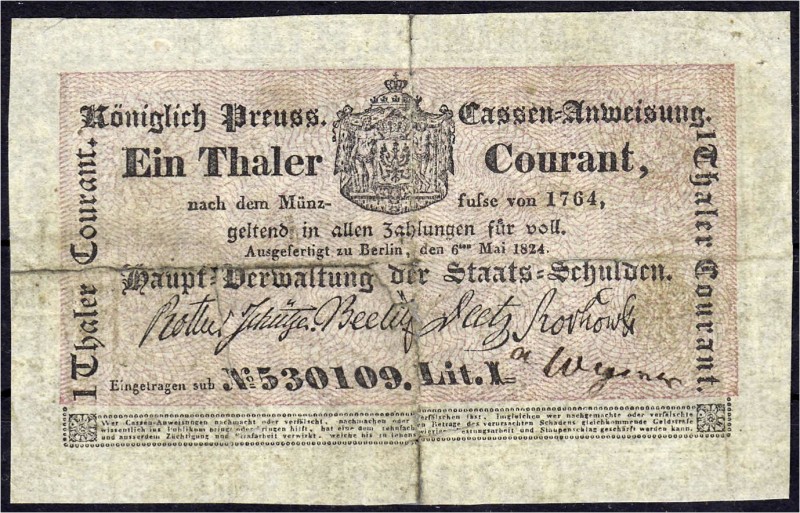 Königlich Preuss. Cassen=Anweisung.
Ein Thaler Courant,
nach dem Münz- fuſse von 1764,
geltend in allen Zahlungen für voll.
Ausgefertigt zu Berlin, den 6ten Mai 1824.
Haupt=Verwaltung der Staats=Schulden.
Rother Schütze. Beelitz Deetz Rochow
Eingetragen sub No 530109. Lit. I a
1 Thaler Courant.
1 Thaler Courant.
Wer Cassen-Anweisungen nachmacht oder verfälscht, nachmachen oder verfälschen läſst, imgleichen wer nachgemachte oder verfälschte
wissentlich ins Publikum bringt oder bringen hilft, hat eine dem zehnfachen Betrage des verursachten Schadens gleichkommende Geldstrafe
und ausserdem Züchtigung und verwirkt, welche bis zu lebenswieriger Festungsarbeit und Staupenschlag geschärft werden kann.